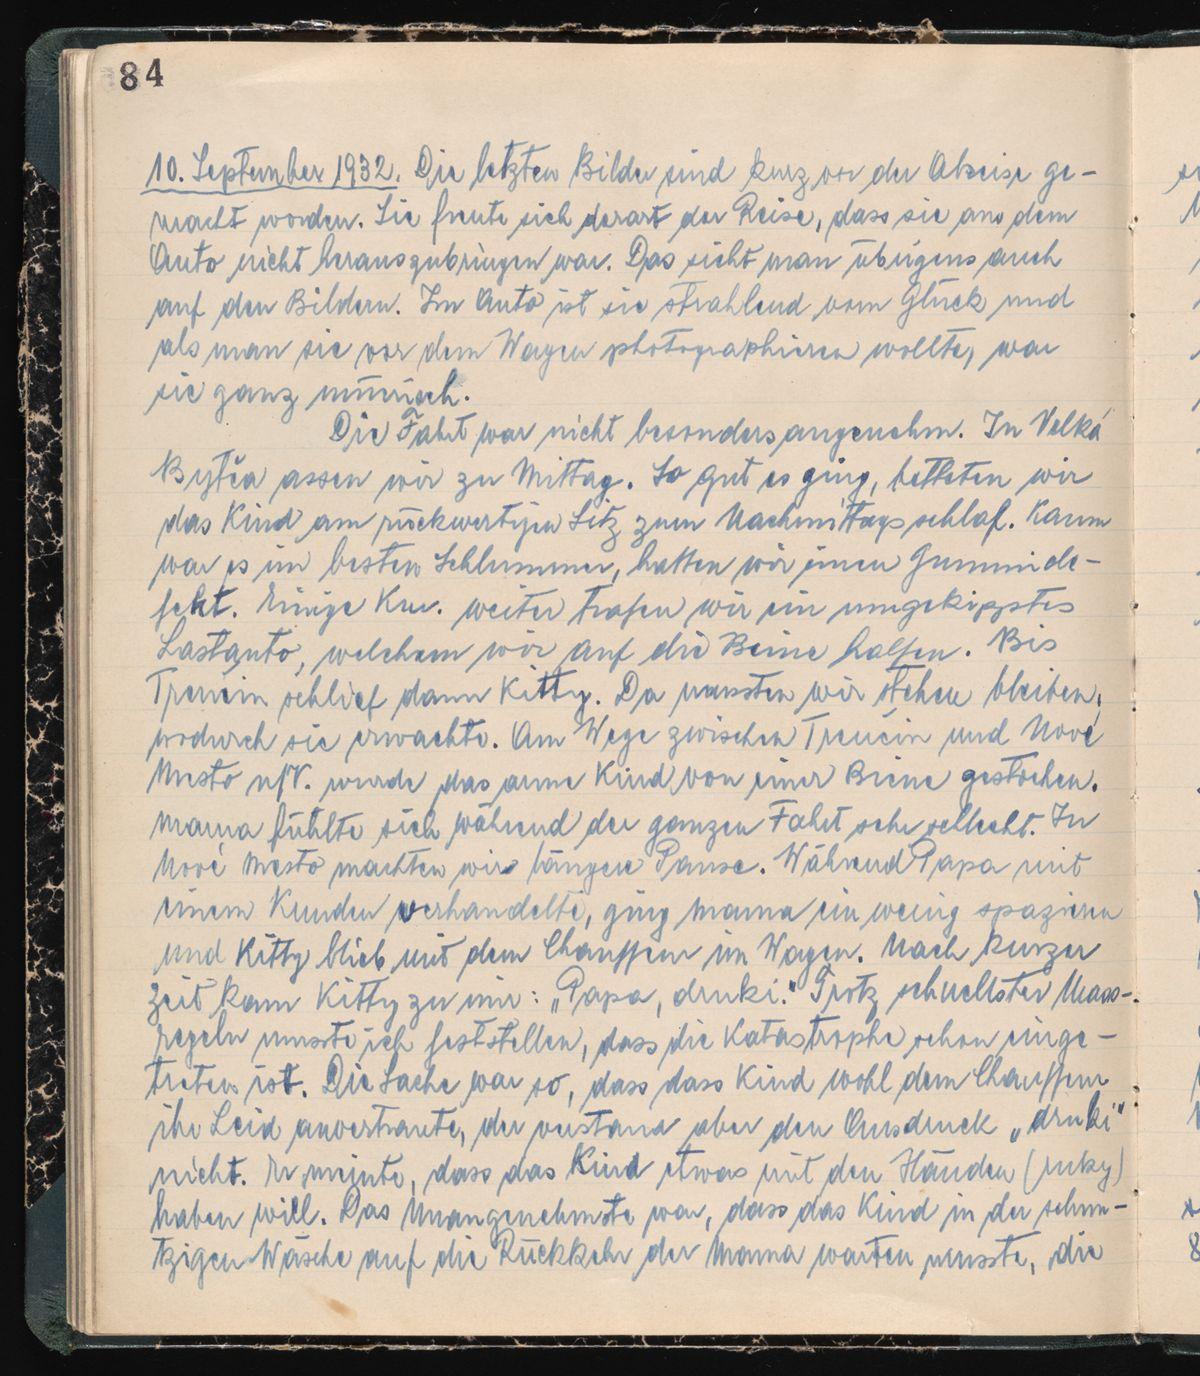 84
10. September 1932. Die letzten Bilder sind kurz vor der Abreise ge-
macht worden. Sie freute sich derart der Reise, dass sie aus dem
Auto nicht herauszubringen war. Das sieht man übrigens auch
auf den Bildern. Im Auto ist sie strahlend vom Glück und
als man sie vor dem Wagen photographieren wollte, war
sie ganz mürrisch.
Die Fahrt war nicht besonders angenehm. In Velká
Bytča assen wir zu Mittag. So gut es ging, betteten wir
das Kind am rückwertigen Sitz zum Nachmittagsschlaf. Kaum
war es im besten Schlummer, hatten wir einen Gummide-
fekt. Einige Km. weiter trafen wir ein umgekipptes
Lastauto, welchem wir auf die Beine halfen. Bis
Trenčin schlief dann Kitty. Da mussten wir stehen bleiben,
wodurch sie erwachte. Am Wege zwischen Trenčin und Nové
Mesto n/V. wurde das arme Kind von einer Biene gestochen.
Mama fühlte sich während der ganzen Fahrt sehr schlecht. In
Nové Mesto machten wir längere Pause. Während Papa mit
einem Kunden verhandelte, ging Mama ein wenig spazieren
und Kitty blieb mit dem Chauffeur im Wagen. Nach kurzer
Zeit kam Kitty zu mir: „Papa, druki." Trotz schnellster Mass-
regeln musste ich feststellen, dass die Katastrophe schon einge-
treten ist. Die Sache war so, dass dass Kind wohl dem Chauffeur
ihr Leid anvertraute, der verstand aber den Ausdruck „druki"
nicht. Er meinte, dass das Kind etwas mit den Händen (ruky)
haben will. Das Unangenehmste war, dass das Kind in der schmu-
tzigen Wäsche auf die Rückkehr der Mama warten musste, die